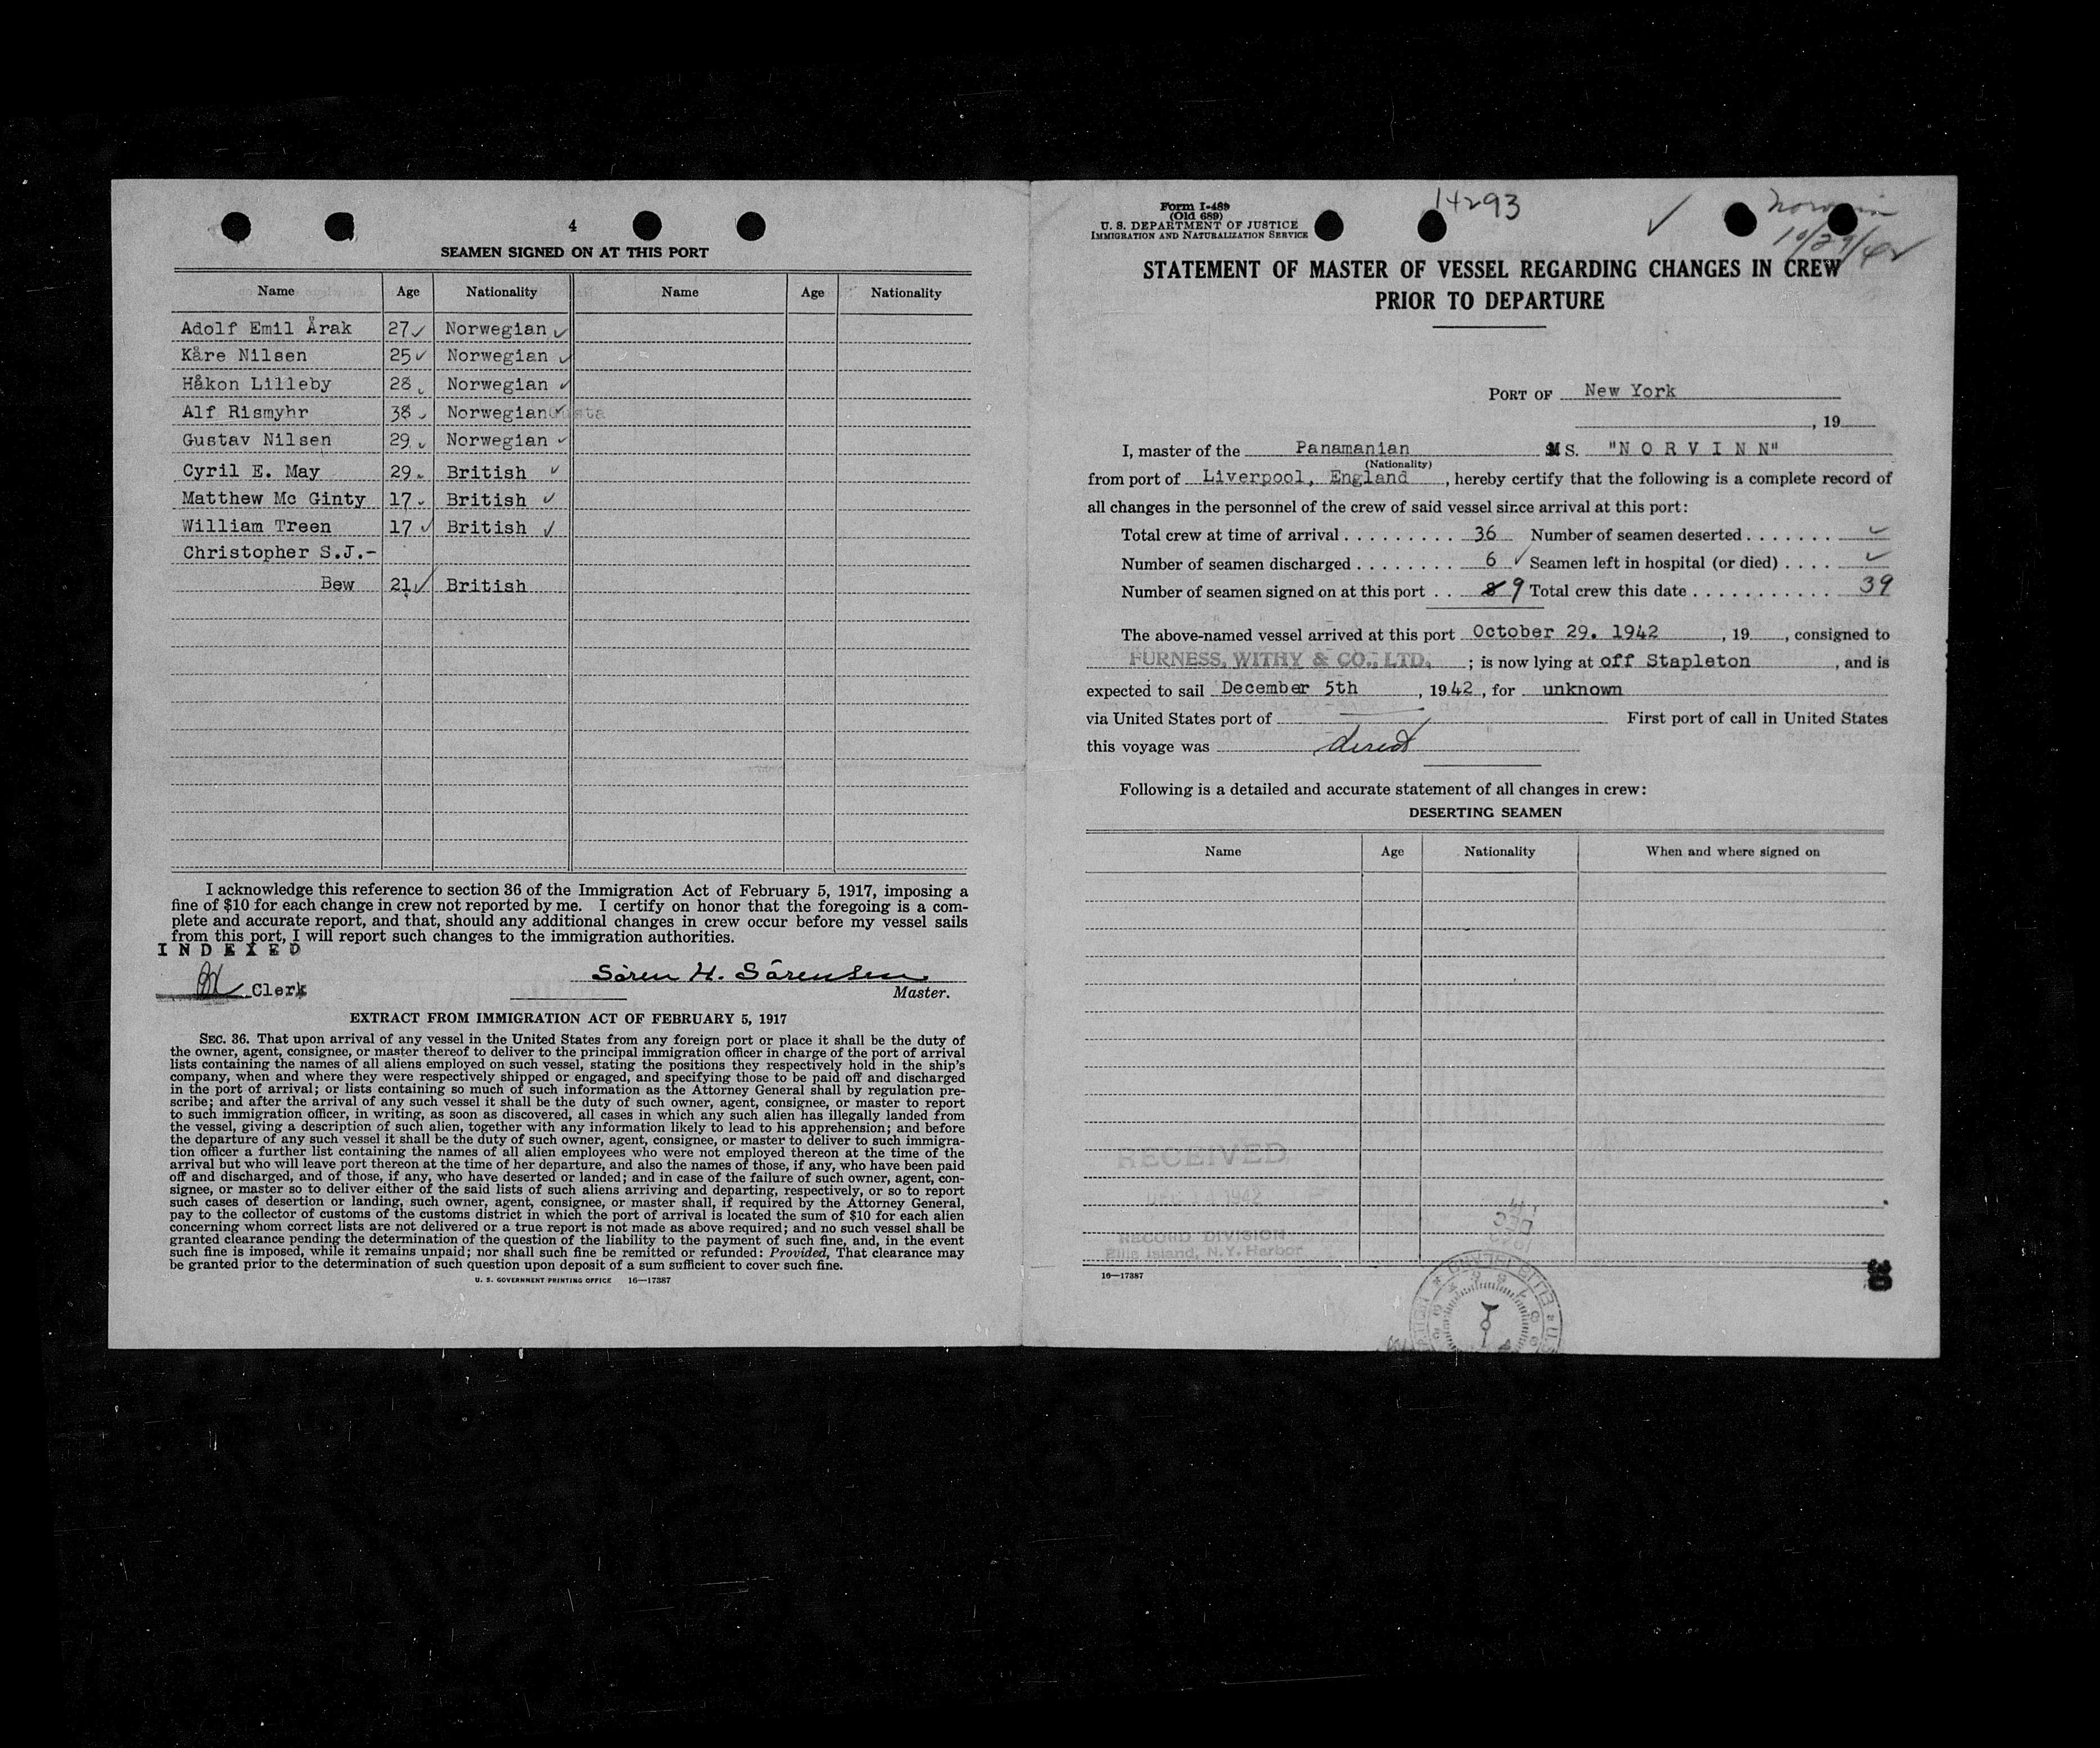 4
SEAMEN SIGNED ON AT THIS PORT
Name Age Nationality Name Age Nationality
Adolf Emil Årak 27 ✓ Norwegian ✓
Kåre Nilsen 25 ✓ Norwegian ✓
Håkon Lilleby 28 ✓ Norwegian ✓
Alf Rismyhr 38 ✓ Norwegian ✓
Gustav Nilsen 29 ✓ Norwegian ✓
Cyril E. May 29 ✓ British ✓
Matthew Mc Ginty 17 ✓ British ✓
William Treen 17 ✓ British ✓
Christopher S.J.-
Bew 21 ✓ British
I acknowledge this reference to section 36 of the Immigration Act of February 5, 1917, imposing a
fine of $10 for each change in crew not reported by me. I certify on honor that the foregoing is a com-
plete and accurate report, and that, should any additional changes in crew occur before my vessel sails
from this port, I will report such changes to the immigration authorities.
INDEXED
Clerk
Sören H. Sörensen
Master.
EXTRACT FROM IMMIGRATION ACT OF FEBRUARY 5, 1917
SEC. 36. That upon arrival of any vessel in the United States from any foreign port or place it shall be the duty of
the owner, agent, consignee, or master thereof to deliver to the principal immigration officer in charge of the port of arrival
lists containing the names of all aliens employed on such vessel, stating the positions they respectively hold in the ship's
company, when and where they were respectively shipped or engaged, and specifying those to be paid off and discharged
in the port of arrival; or lists containing so much of such information as the Attorney General shall by regulation pre-
scribe; and after the arrival of any such vessel it shall be the duty of such owner, agent, consignee, or master to report
to such immigration officer, in writing, as soon as discovered, all cases in which any such alien has illegally landed from
the vessel, giving a description of such alien, together with any information likely to lead to his apprehension; and before
the departure of any such vessel it shall be the duty of such owner, agent, consignee, or master to deliver to such immigra-
tion officer a further list containing the names of all alien employees who were not employed thereon at the time of the
arrival but who will leave port thereon at the time of her departure, and also the names of those, if any, who have been paid
off and discharged, and of those, if any, who have deserted or landed; and in case of the failure of such owner, agent, con-
signee, or master so to deliver either of the said lists of such aliens arriving and departing, respectively, or so to report
such cases of desertion or landing, such owner, agent, consignee, or master shall, if required by the Attorney General,
pay to the collector of customs of the customs district in which the port of arrival is located the sum of $10 for each alien
concerning whom correct lists are not delivered or a true report is not made as above required; and no such vessel shall be
granted clearance pending the determination of the question of the liability to the payment of such fine, and, in the event
such fine is imposed, while it remains unpaid; nor shall such fine be remitted or refunded: Provided, That clearance may
be granted prior to the determination of such question upon deposit of a sum sufficient to cover such fine.
U. S. GOVERNMENT PRINTING OFFICE 16—17387
Form I-489
(Old 689)
U. S. DEPARTMENT OF JUSTICE
IMMIGRATION AND NATURALIZATION SERVICE
14293
✓
10/29/42
STATEMENT OF MASTER OF VESSEL REGARDING CHANGES IN CREW
PRIOR TO DEPARTURE
PORT OF New York
, 19
I, master of the Panamanian MS. "NORVINN"
(Nationality)
from port of Liverpool, England, hereby certify that the following is a complete record of
all changes in the personnel of the crew of said vessel since arrival at this port:
Total crew at time of arrival . . . . . . . . . 36 Number of seamen deserted . . . . . . . ✓
Number of seamen discharged . . . . . . . . 6 ✓ Seamen left in hospital (or died) . . . . ✓
Number of seamen signed on at this port . . 8 9 Total crew this date . . . . . . . . . . . 39
The above-named vessel arrived at this port October 29. 1942, 19, consigned to
FURNESS, WITHY & CO., LTD. ; is now lying at off Stapleton, and is
expected to sail December 5th, 1942, for unknown
via United States port of First port of call in United States
this voyage was direct
Following is a detailed and accurate statement of all changes in crew:
DESERTING SEAMEN
Name Age Nationality When and where signed on
RECEIVED
DEC 1942
RECORD DIVISION
Ellis Island, N.Y. Harbor
16—17387
30